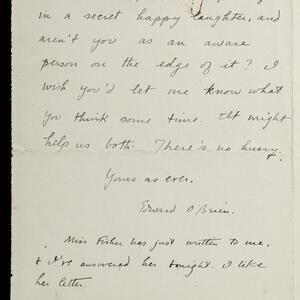 in a secret happy laughter, and
aren't you as an aware
person on the edge of it? I
wish you'd let me know what
you think some time. It might
help us both. There's no hurry.
Yours as ever,
Edward O'Brien.
Miss Fisher has just written to me,
& I've answered her tonight. I like
her letter.